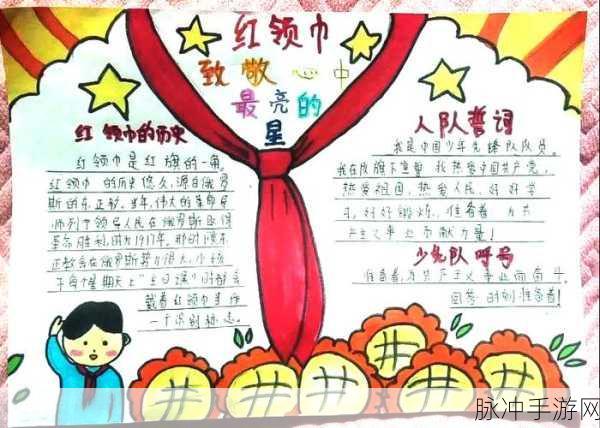 红领巾
致敬心中
最亮的
星
红领巾的历史
红领巾是红旗的一角。
红领巾的历史悠久，源自俄罗
斯的东正教。当年，伟大的革命导
师列宁领导人民在俄罗斯取得
革命胜利，因为1917年，那时候东
正教会在俄罗斯势力很大，小孩
子每个星期天上"主日课"时都会
戴着红领巾当作
一个识别标志。
入队誓词
我是中国少年先锋队队员。
我在队旗下宣誓 我热爱中国共产党，
热爱祖国，热爱人民，好好学
习，好好锻炼，准备着，为共
产主义事业贡献力量！
少先队呼号
准备着，为共产主义事业而奋斗
回答：时刻准备着！
脉冲手游网